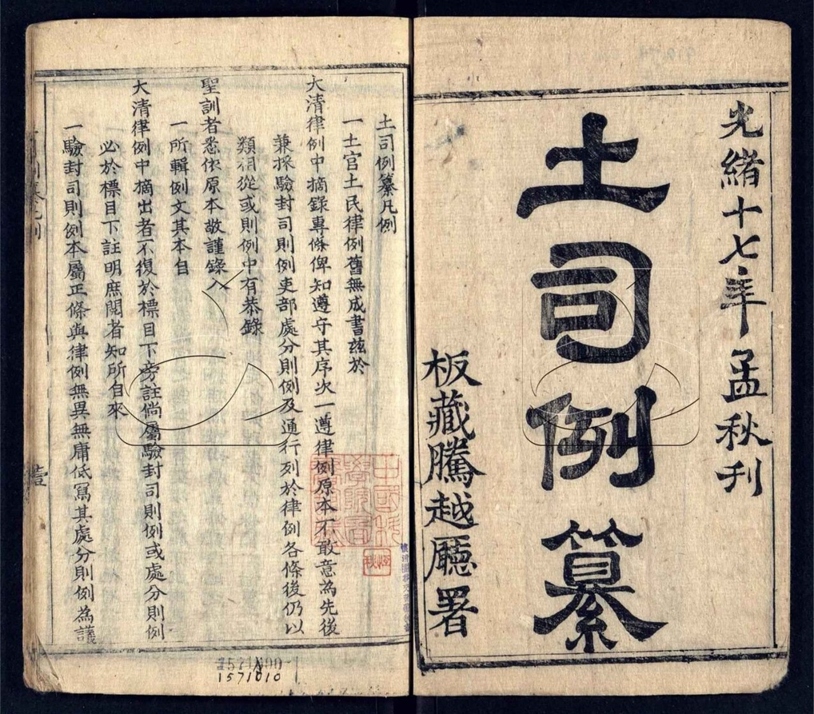 光緒十七年孟秋刊
土司例纂
板藏騰越廳署
土司例纂凡例
一土官土民律例舊無成書兹於
大清律例中摘錄專條俾知遵守其序次一遵律例原本不敢意為先後
兼採驗封司則例吏部處分則例及通行列於律例各條後仍以
類相從或則例中有恭錄
聖訓者悉依原本敬謹錄入
一所輯例文其本自
大清律例中摘出者不復於標目下旁註倘屬驗封司則例或處分則例
必於標目下註明庶閱者知所自來
一驗封司則例本屬正條與律例無異無庸低寫其處分則例為議
壹
1571010